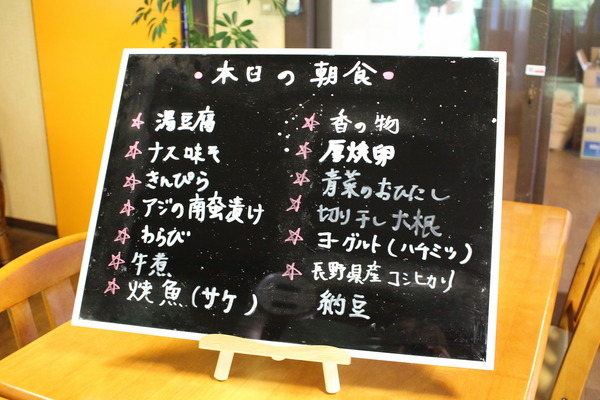 本日の朝食
湯豆腐
ナス味そ
きんぴら
アジの南蛮漬け
わらび
牛煮
焼魚(サケ)
香の物
厚焼卵
青菜のおひたし
切り干し大根
ヨーグルト(ハチミツ)
長野県産コシヒカリ
納豆